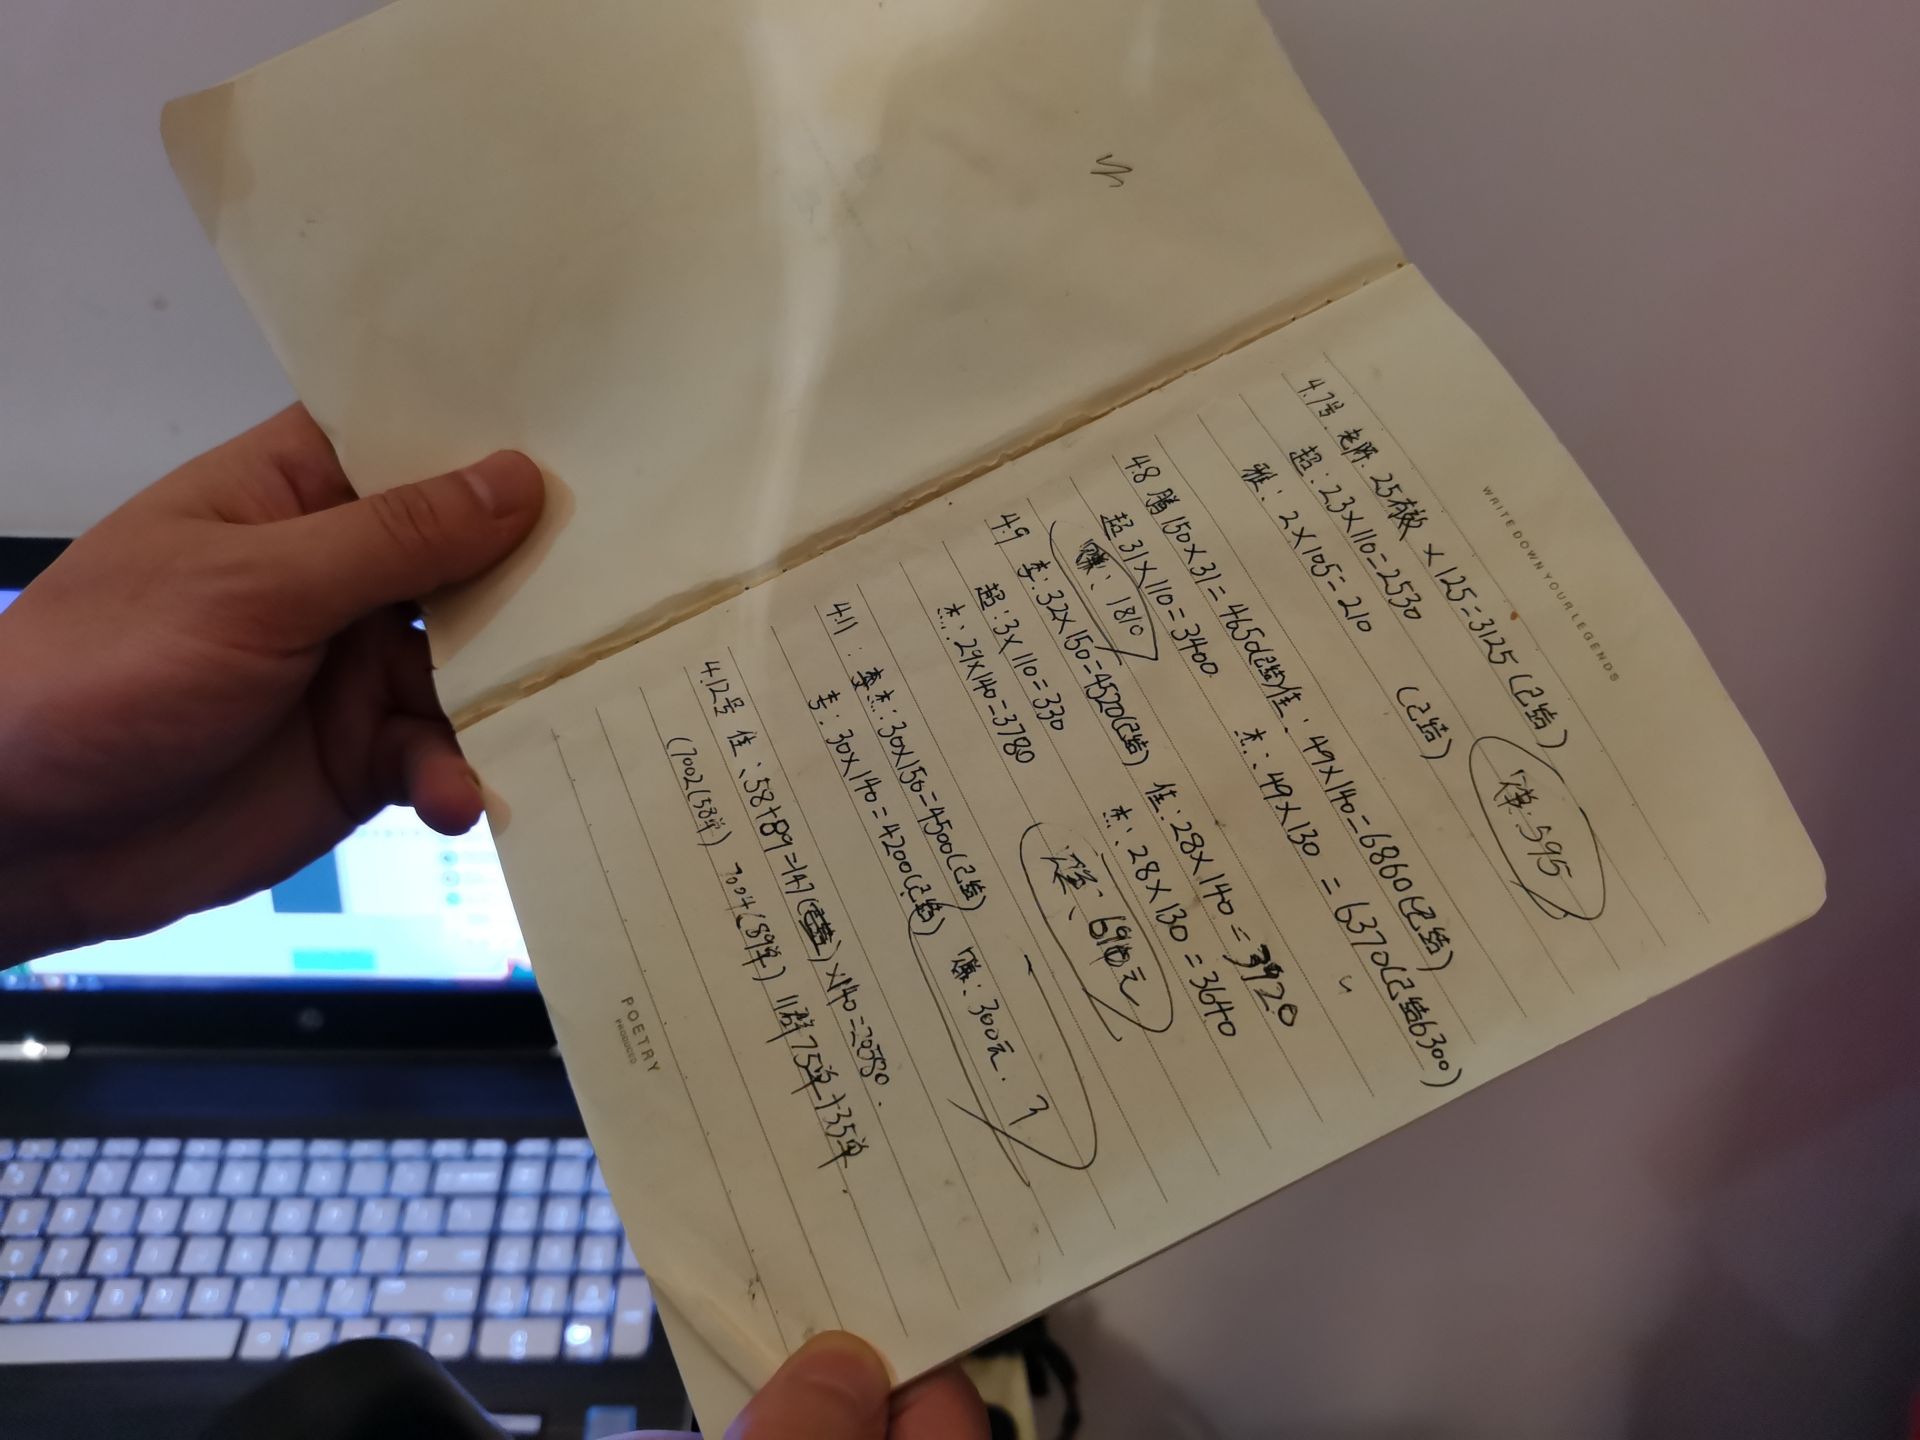 WRITE DOWN YOUR LEGENDS
4.7号 老陈: 25有效 × 125 = 3125 (已结)
超: 23×110=2530 (已结)
雅: 2×105=210
赚: 595
4.8 腾 150×31=4650(已结) 佳: 49×140=6860(已结)
超 31×110=3400 杰: 49×130=6370(已结6300)
赚: 1810
4.9 李: 32×150=4520(已结) 佳: 28×140=3920
超: 3×110=330 杰: 28×130=3640
杰: 29×140=3780
赚: 690元
4.11: 杰: 30×150=4500(已结)
李: 30×140=4200(已结) 赚: 300元.
4.12号 佳: 58+89=147 ×140=20580.
(7002(58单) 7004(89单) 11群 75单
POETRY
PRODUCED